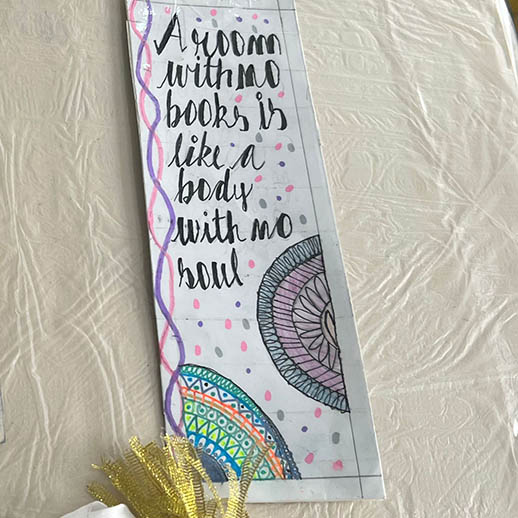 A room
with no
books is
like a
body
with no
soul